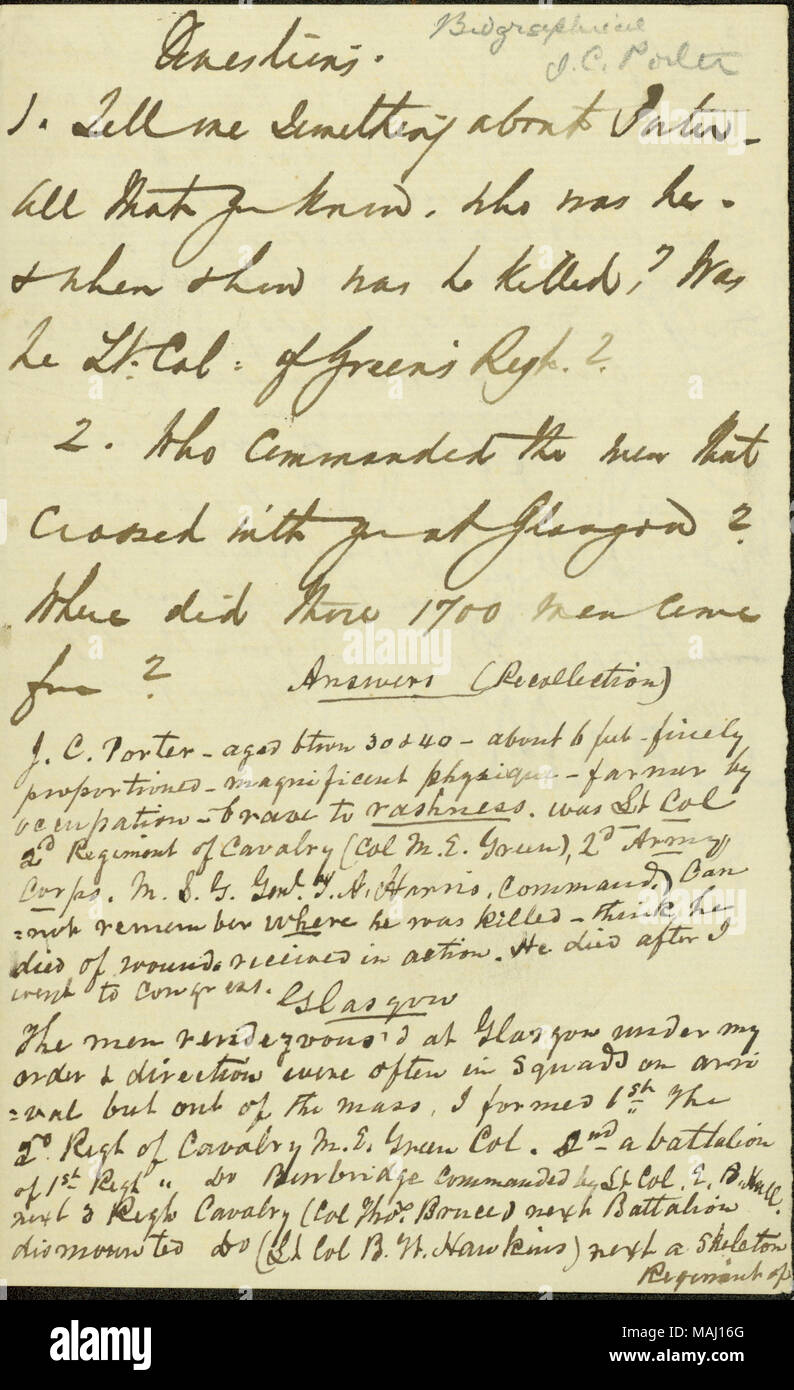 Questions.
Biographical
J. C. Porter
1. Tell me Something about Porter -
all that you know. who was he -
& when & how was he killed? Was
he Lt. Col = of Green's Regt. ?
2. Who Commanded the men that
Crossed with you at Glasgow ?
Where did those 1700 men come
from ?
Answers (Recollection)
J. C. Porter - aged btwn 30 & 40 - about 6 feet - finely
proportioned - magnificent physique - farmer by
occupation - brave to rashness. was Lt Col
2d Regiment of Cavalry (Col M. E. Green), 2d Army
Corps. M. S. G. Genl. T. A. Harris, Command.) Can
=not remember where he was killed - think he
died of wounds received in action. He died after I
went to Congress.
Glasgow
The men rendezvous'd at Glasgow under my
order & direction were often in Squads on arri
=val but out of the mass, I formed 1st The
2d Regt of Cavalry M. E. Green Col. 2nd a battalion
of 1st Regt " do Burbridge commanded by Lt Col. E. B. Hull.
next 3 Regt Cavalry (Col Thos. Bruce) next Battalion
dismounted do (Lt Col B. W. Hawkins) next a Skeleton
Regiment of
alamy
alamy stock photo
MAJ16G
www.alamy.com